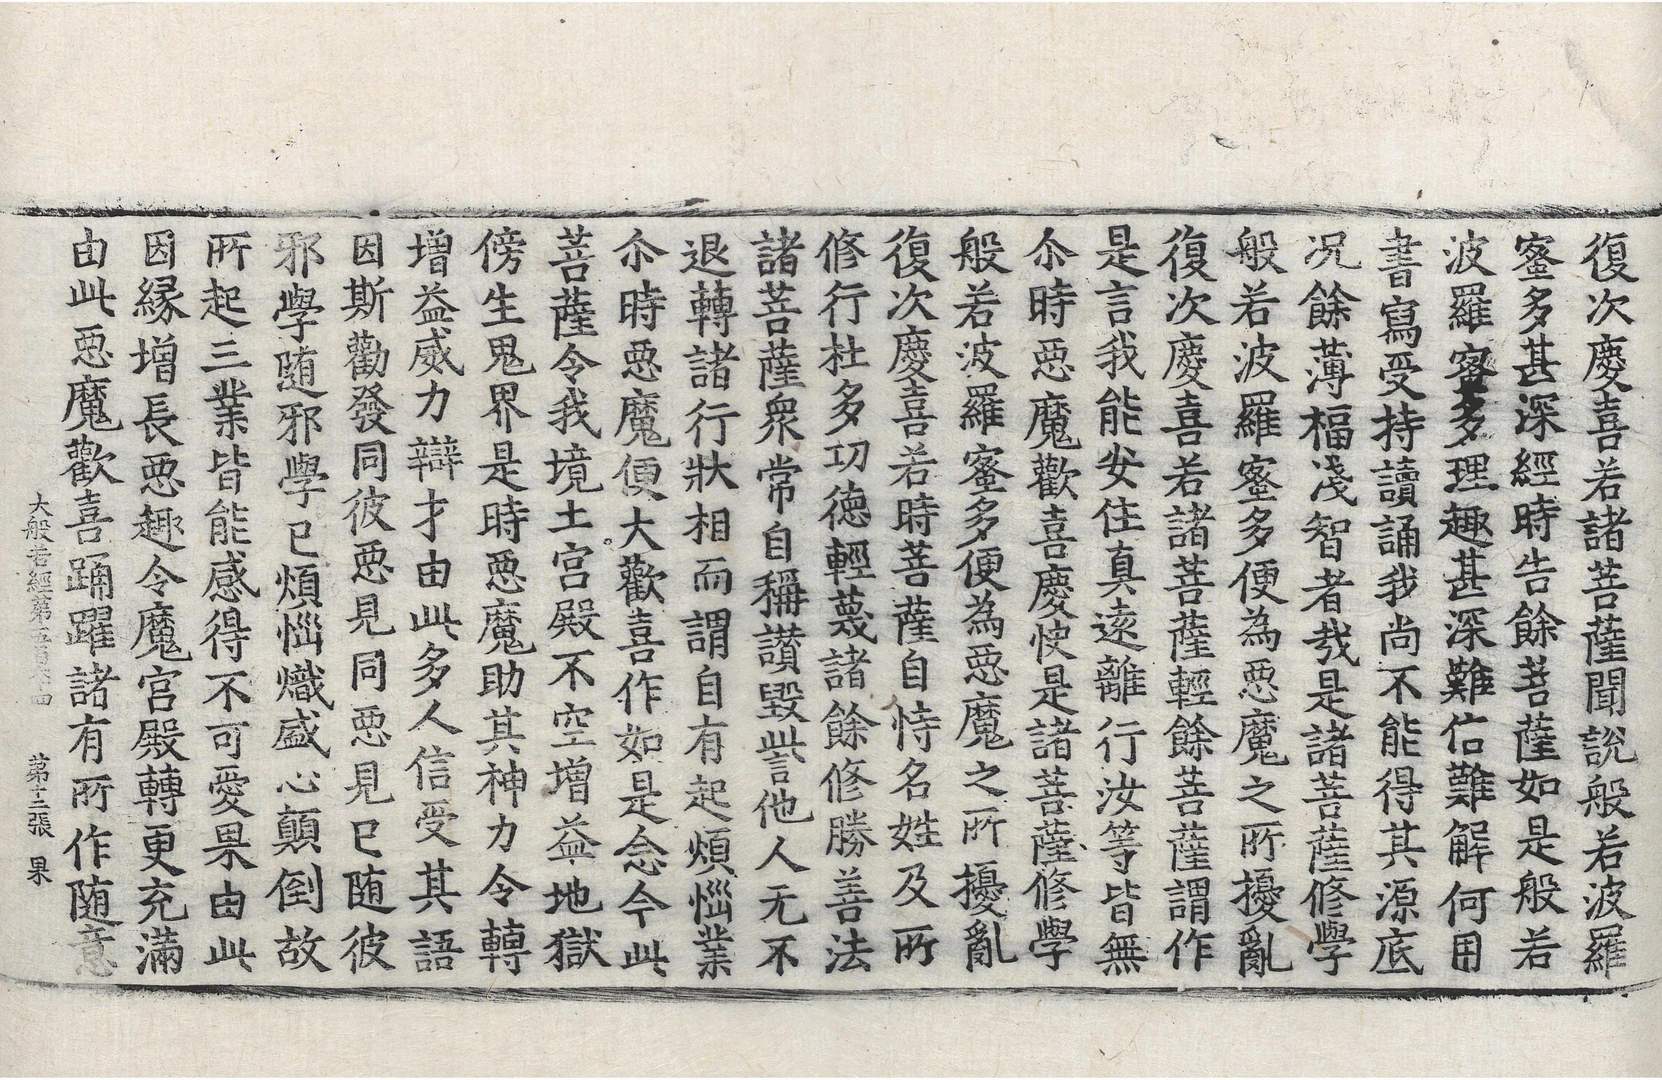 復次慶喜若諸菩薩聞說般若波羅
蜜多甚深經時告餘菩薩如是般若
波羅蜜多理趣甚深難信難解何用
書寫受持讀誦我尚不能得其源底
况餘薄福淺智者㦲是諸菩薩修學
般若波羅蜜多便為惡魔之所擾亂
復次慶喜若諸菩薩輕餘菩薩謂作
是言我能安住真遠離行汝等皆無
尒時惡魔歡喜慶快是諸菩薩修學
般若波羅蜜多便為惡魔之所擾亂
復次慶喜若時菩薩自恃名姓及所
修行杜多功德輕蔑諸餘修勝善法
諸菩薩衆常自稱讃毀呰他人无不
退轉諸行狀相而謂自有起煩惱業
尒時惡魔便大歡喜作如是念今此
菩薩令我境土宮殿不空增益地獄
傍生鬼界是時惡魔助其神力令轉
增益威力辯才由此多人信受其語
因斯勸發同彼惡見同惡見已随彼
邪學随邪學已煩惱熾盛心顛倒故
所起三業皆能感得不可愛果由此
因縁增長惡趣令魔宮殿轉更充滿
由此惡魔歡喜踊躍諸有所作随意
大般若經第五百六十四 第十二張 果